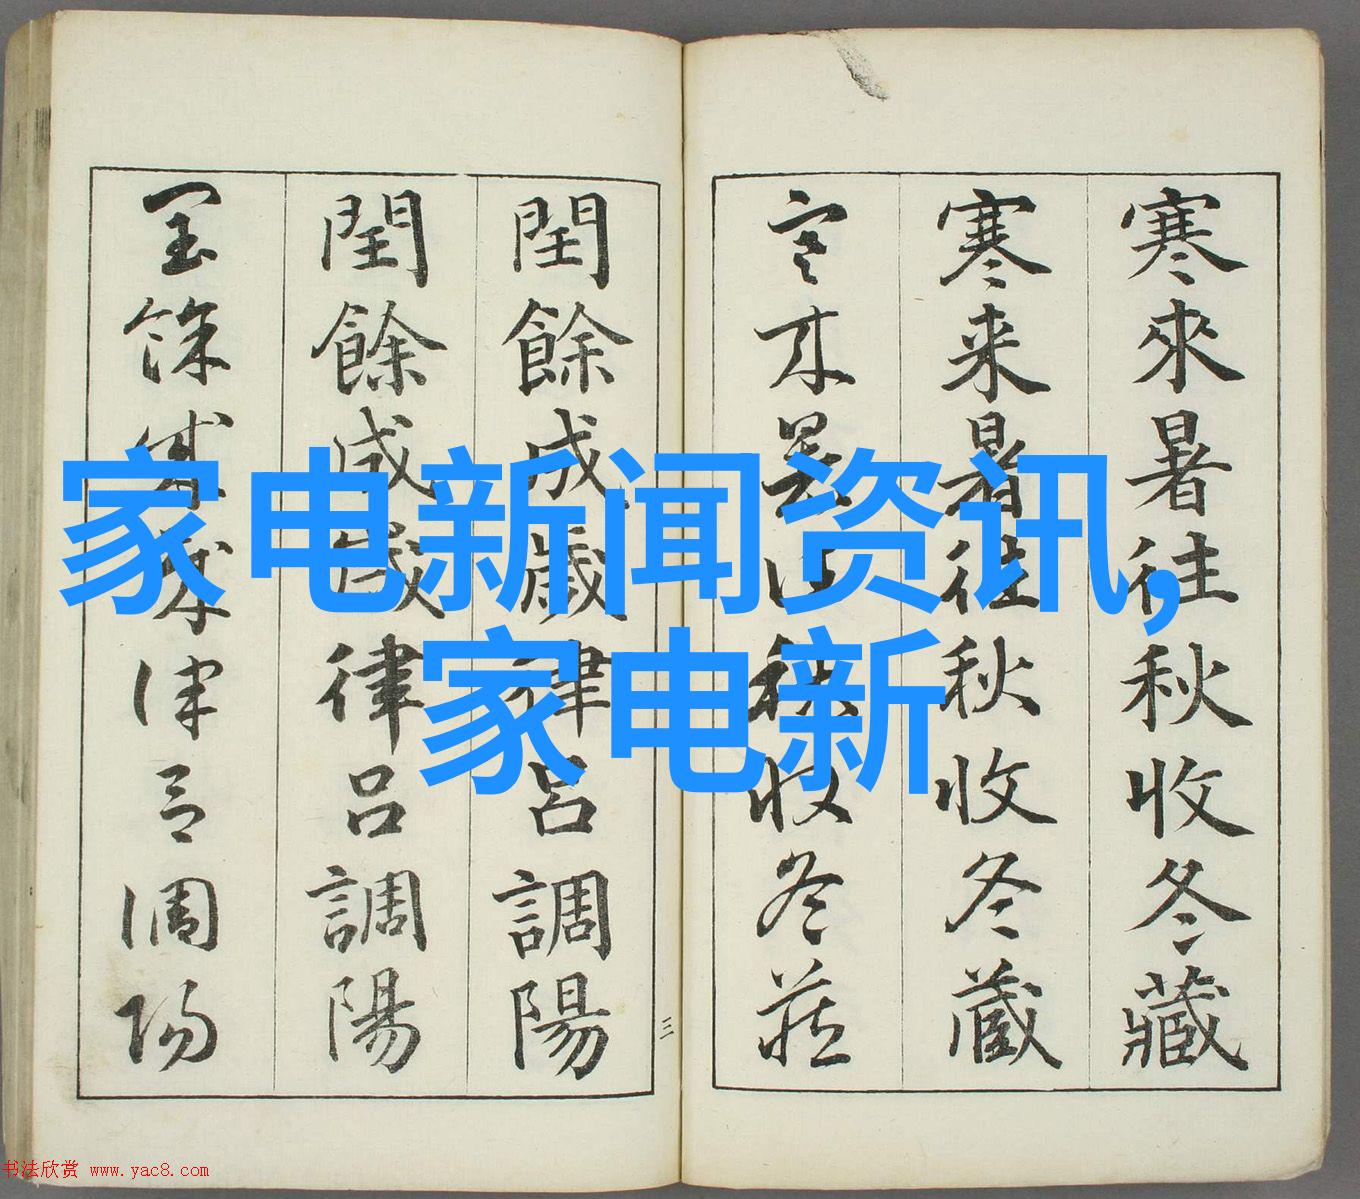 寒來暑往秋收冬藏
寒来暑往秋收冬藏
寒来暑往秋收冬藏
閏餘成歲律呂調陽
閏餘成歲律呂調陽
閏餘成歲律呂調陽
三
家电新闻资讯,
家电新
书法欣赏 www.yac8.com